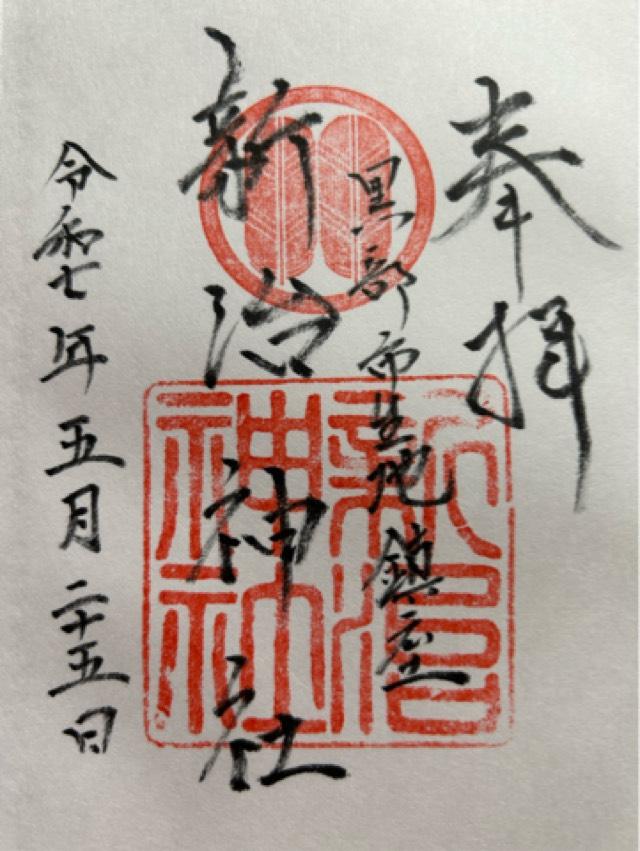 奉拝
黒部市生地鎮座
新治神社
令和七年五月二十五日
新治
神社